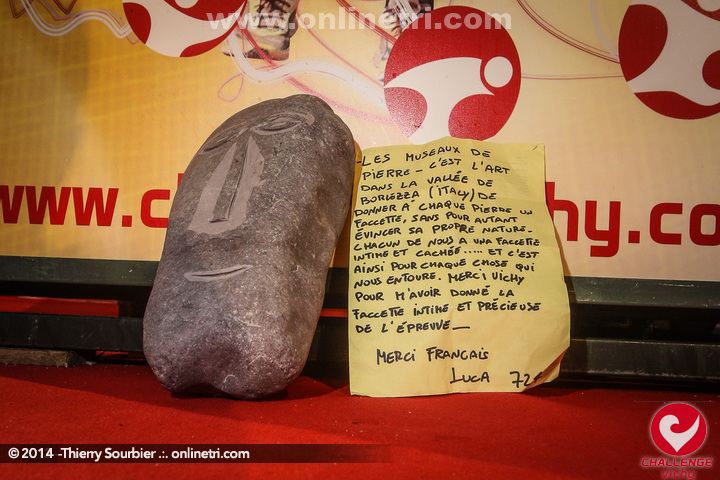 www.onlinetri.com
www.c
hy.co
-LES MUSEAUX DE
PIERRE - C'EST L'ART
DANS LA VALLÉE DE
BORLEZZA (ITALY) DE
DONNER A' CHAQUE PIERRE UN
FACCETTE, SANS POUR AUTANT
ÉVINCER SA PROPRE NATURE-
CHACUN DE NOUS A UNE FACCETTE
INTIME ET CACHÉE..... ET C'EST
AINSI POUR CHAQUE CHOSE QUI
NOUS ENTOURE. MERCI VICHY
POUR M'AVOIR DONNÉ LA
FACCETTE INTIME ET PRÉCIEUSE
DE L'ÉPREUVE_
MERCI FRANCAIS
LUCA
© 2014 -Thierry Sourbier .:. onlinetri.com
CHALLENGE
vichy